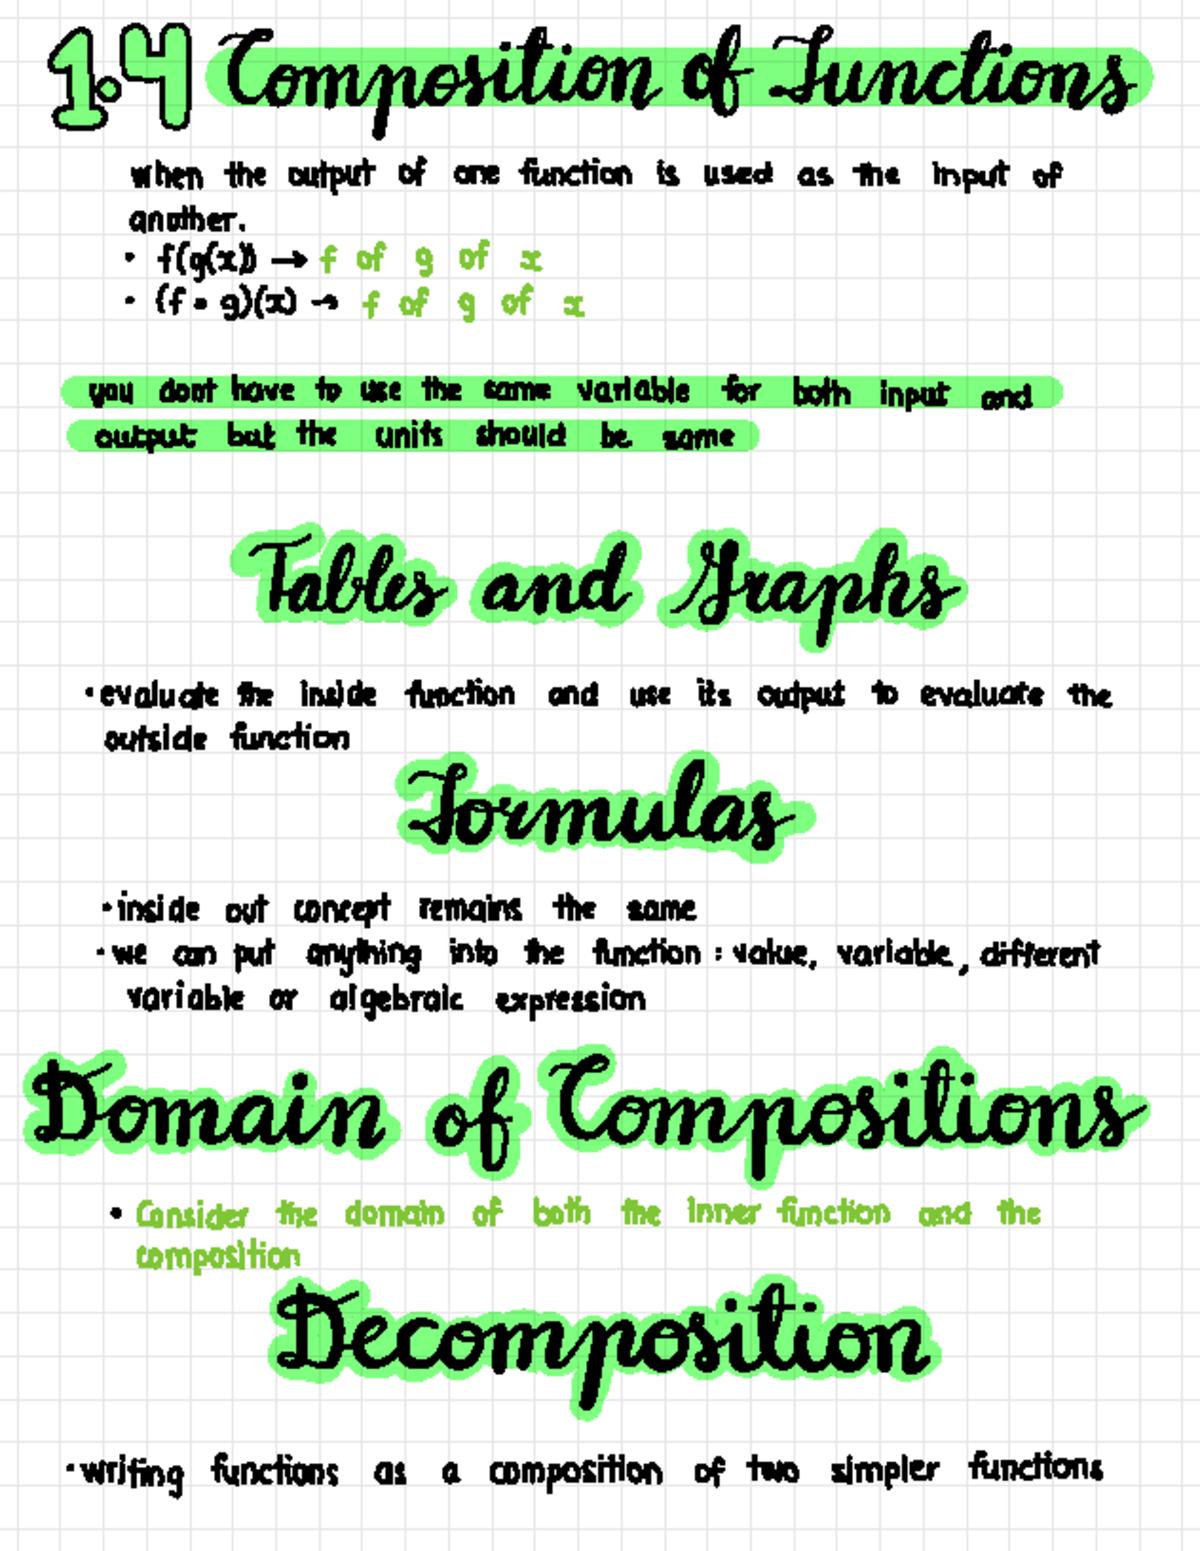 1.4 Composition of Functions
when the output of one function is used as the input of
another.
• f(g(x)) → f of g of x
• (f∘g)(x) → f of g of x
you dont have to use the same variable for both input and
output but the units should be same
Tables and Graphs
• evaluate the inside function and use its output to evaluate the
outside function
Formulas
• inside out concept remains the same
• we can put anything into the function : value, variable, different
variable or algebraic expression
Domain of Compositions
• Consider the domain of both the inner function and the
composition
Decomposition
• writing functions as a composition of two simpler functions